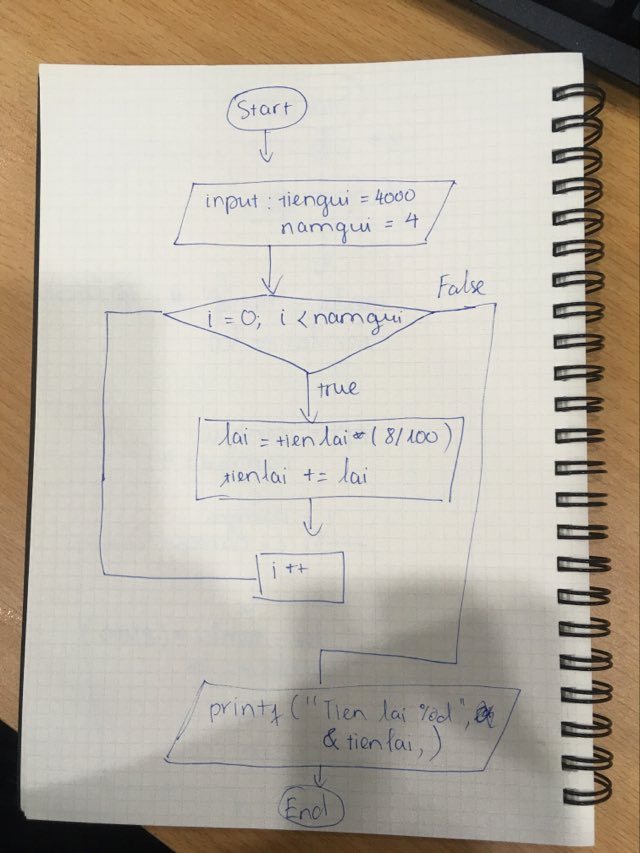 Start
input : tiengui = 4000
namgui = 4
i = 0; i < namgui
False
true
lai = tienlai * (8/100)
tienlai += lai
i ++
printf ("Tien lai %d",
& tienlai, )
End